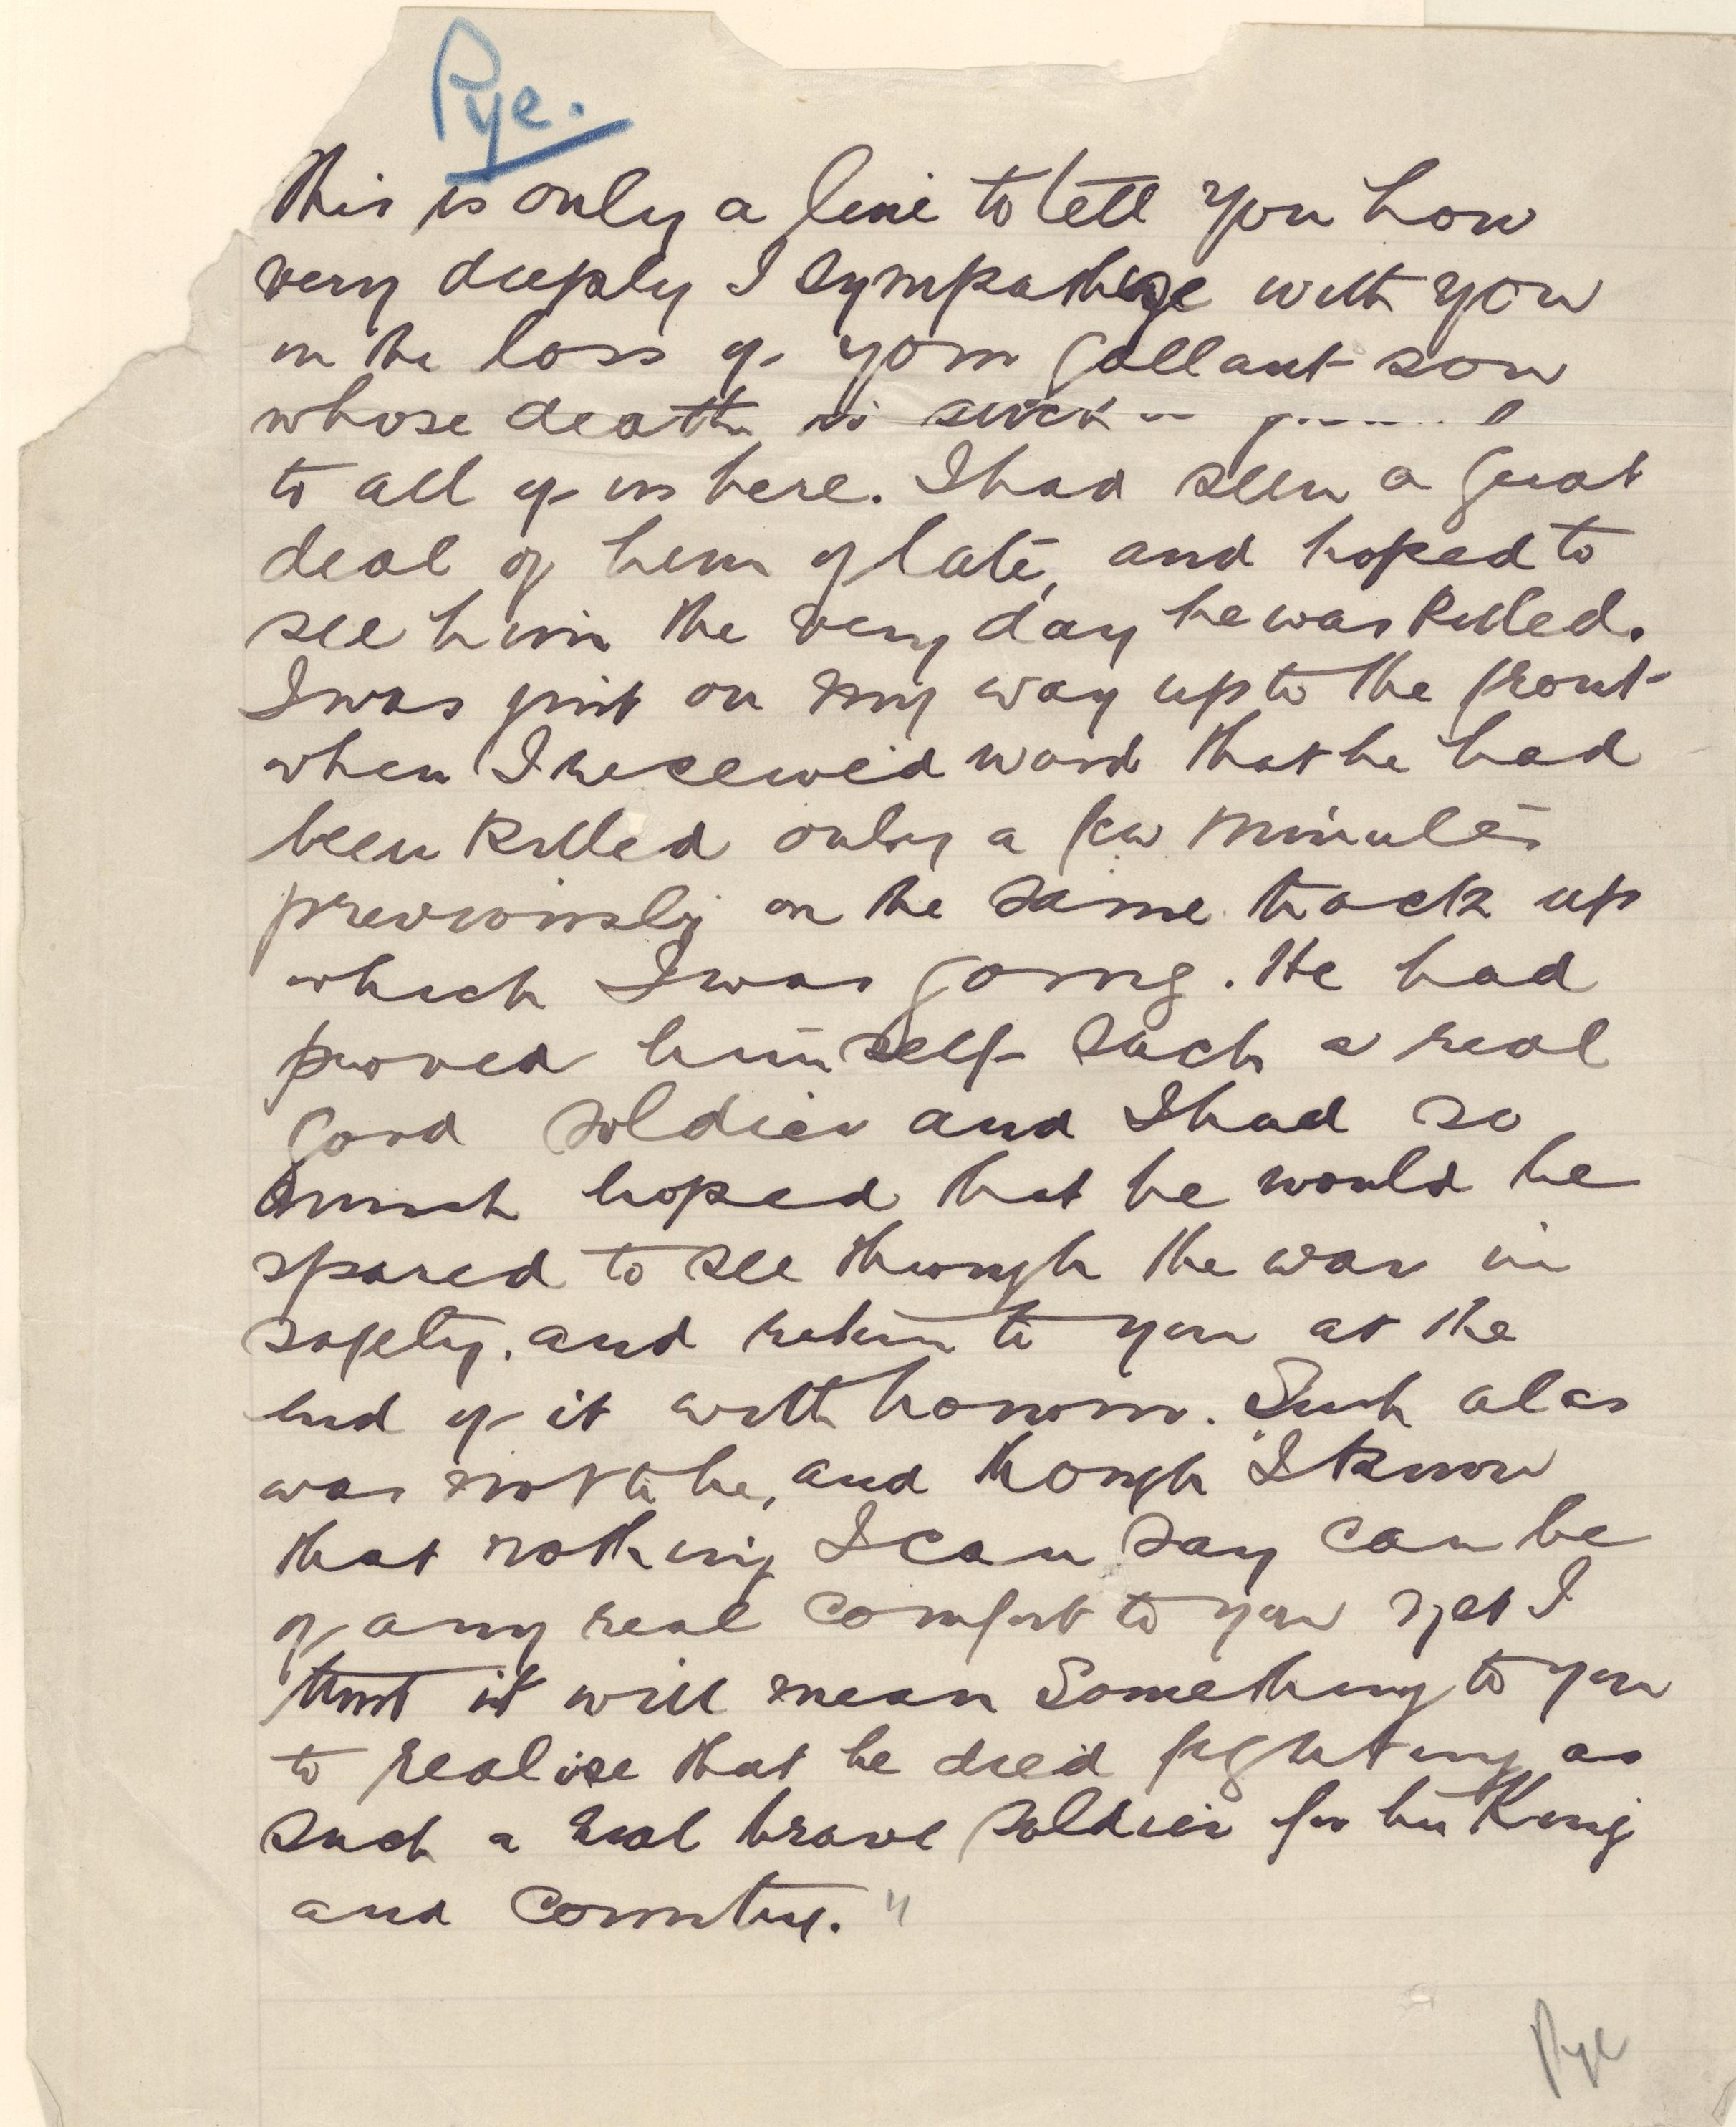 Pye.
This is only a line to tell you how
very deeply I sympathize with you
in the loss of your gallant son
whose death is such a
to all of us here. I had seen a great
deal of him of late, and hoped to
see him the very day he was killed.
I was just on my way up to the front
when I received word that he had
been killed only a few minutes
previously on the same track up
which I was going. He had
proved himself such a real
good soldier and I had so
much hoped that he would be
spared to see through the war in
safety, and return to you at the
end of it with honour. Such alas
was not to be, and though I know
that nothing I can say can be
of any real comfort to you yet I
trust it will mean something to you
to realise that he died fighting as
such a real brave soldier for his King
and Country."
Pye